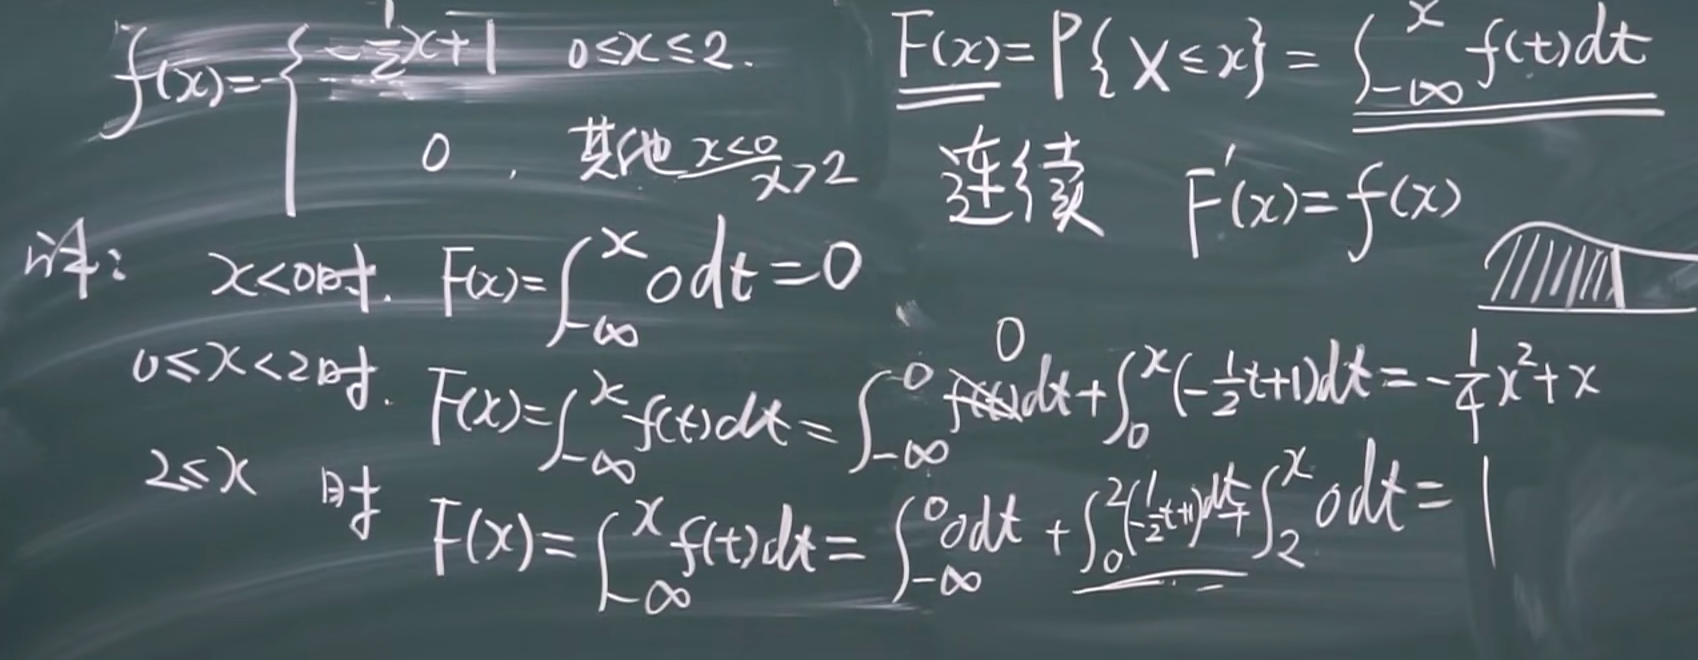 f(x)={ -1/2x+1 0≤x≤2.
0, 其他 x<0 x>2
F(x)=P{X≤x}=∫_{-∞}^{x} f(t)dt
连续 F'(x)=f(x)
解:
x<0时. F(x)=∫_{-∞}^{x} 0dt=0
0≤x<2时. F(x)=∫_{-∞}^{x} f(t)dt=∫_{-∞}^{0} 0 dt+∫_{0}^{x}(-1/2t+1)dt=-1/4x²+x
2≤x 时 F(x)=∫_{-∞}^{x} f(t)dt=∫_{-∞}^{0} 0dt+∫_{0}^{2}(-1/2t+1)dt+∫_{2}^{x} 0dt=1